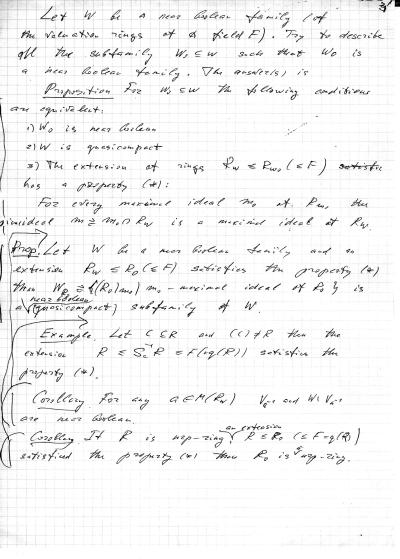 Let W be a near boolean family (of
the valuation rings of a field F). Try to describe
all the subfamily W₀ ⊆ W such that W₀ is
a near boolean family. The answer(s) is
Proposition For W₀ ⊆ W the following conditions
are equivalent:
1) W₀ is near boolean
2) W is quasicompact
3) The extension of rings R_W ⊆ R_W₀ (⊆ F)
has a property (*):
For every maximal ideal m₀ of R_W₀ the
ideal m ≅ m₀ ∩ R_W is a maximal ideal of R_W.
Prop. Let W be a near boolean family and an
extension R_W ⊆ R₀ (⊆ F) satisfies the property (*)
then W_R₀ ≅ {(R₀)m₀ | m₀ - maximal ideal of R₀} is
near boolean
a (quasicompact) subfamily of W.
Example. Let C ⊆ R and (C) ≠ R then the
extension R ⊆ S_C⁻¹R ⊆ F (= q(R)) satisfies the
property (*).
Corollary For any a ∈ M(R_W) V_a⁻¹ and W \ V_a⁻¹
are near boolean.
an extension
Corollary If R is R ⊆ R₀ (⊆ F = q(R))
satisfied the property (*) then R₀ is